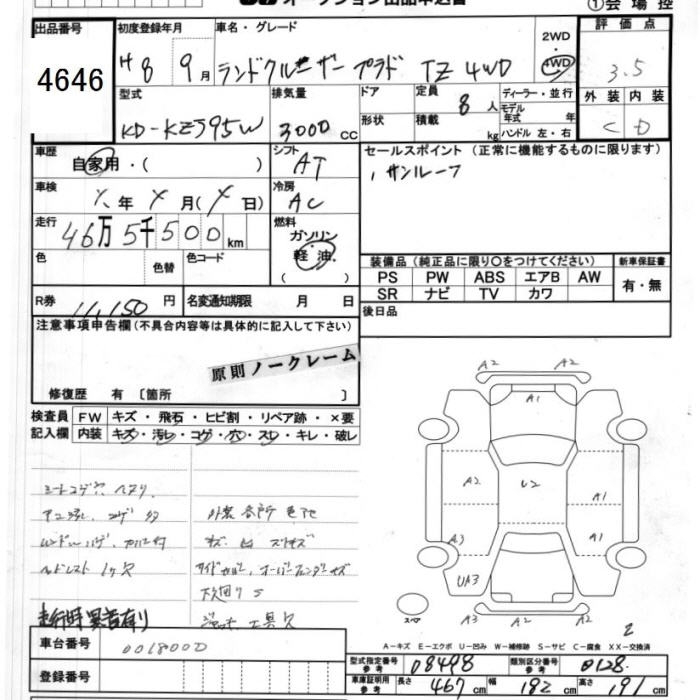 オークション出品申込書
①会場控
出品番号
4646
初度登録年月
H8 9月
車名・グレード
ランドクルーザー プラド TZ 4WD
2WD
・
4WD
評価点
3.5
外装 内装
C D
型式
KD-KZJ95W
排気量
3000cc
ドア
形状
定員 8人
積載 kg
ディーラー・並行
モデル
年式 年
ハンドル 左・右
車歴
自家用・( )
シフト
AT
車検
年 月( 日)
冷房
AC
走行
46万5千500km
燃料
ガソリン
軽油
( )
色
色替
色コード
R券
11,150円
名変通知期限 月 日
セールスポイント (正常に機能するものに限ります)
サンルーフ
装備品 (純正品に限り○をつけてください)
PS PW ABS エアB AW
SR ナビ TV カワ
新車保証書
有・無
後日品
注意事項申告欄(不具合内容等は具体的に記入して下さい)
原則ノークレーム
修復歴 有〔箇所 〕
検査員 FW キズ・飛石・ヒビ割・リペア跡・×要
記入欄 内装 キズ・汚レ・コゲ・穴・スレ・キレ・破レ
シートコゲ穴、ヘタリ
外装各所色アセ
ヘッドレスト1ケ欠
下廻りS
走行時異音有り
工具欠
A2 A2
A1
A2 U2 A1
A3 A1
UA3
A3 A2 A2
スペア
2
A-キズ E-エクボ U-凹み W-補修跡 S-サビ C-腐食 XX-交換済
車台番号
0018000
登録番号
型式指定番号
参考
08498
類別区分番号
参考
0128
車庫証明用
参考
長さ 467cm 幅 182cm 高さ 191cm